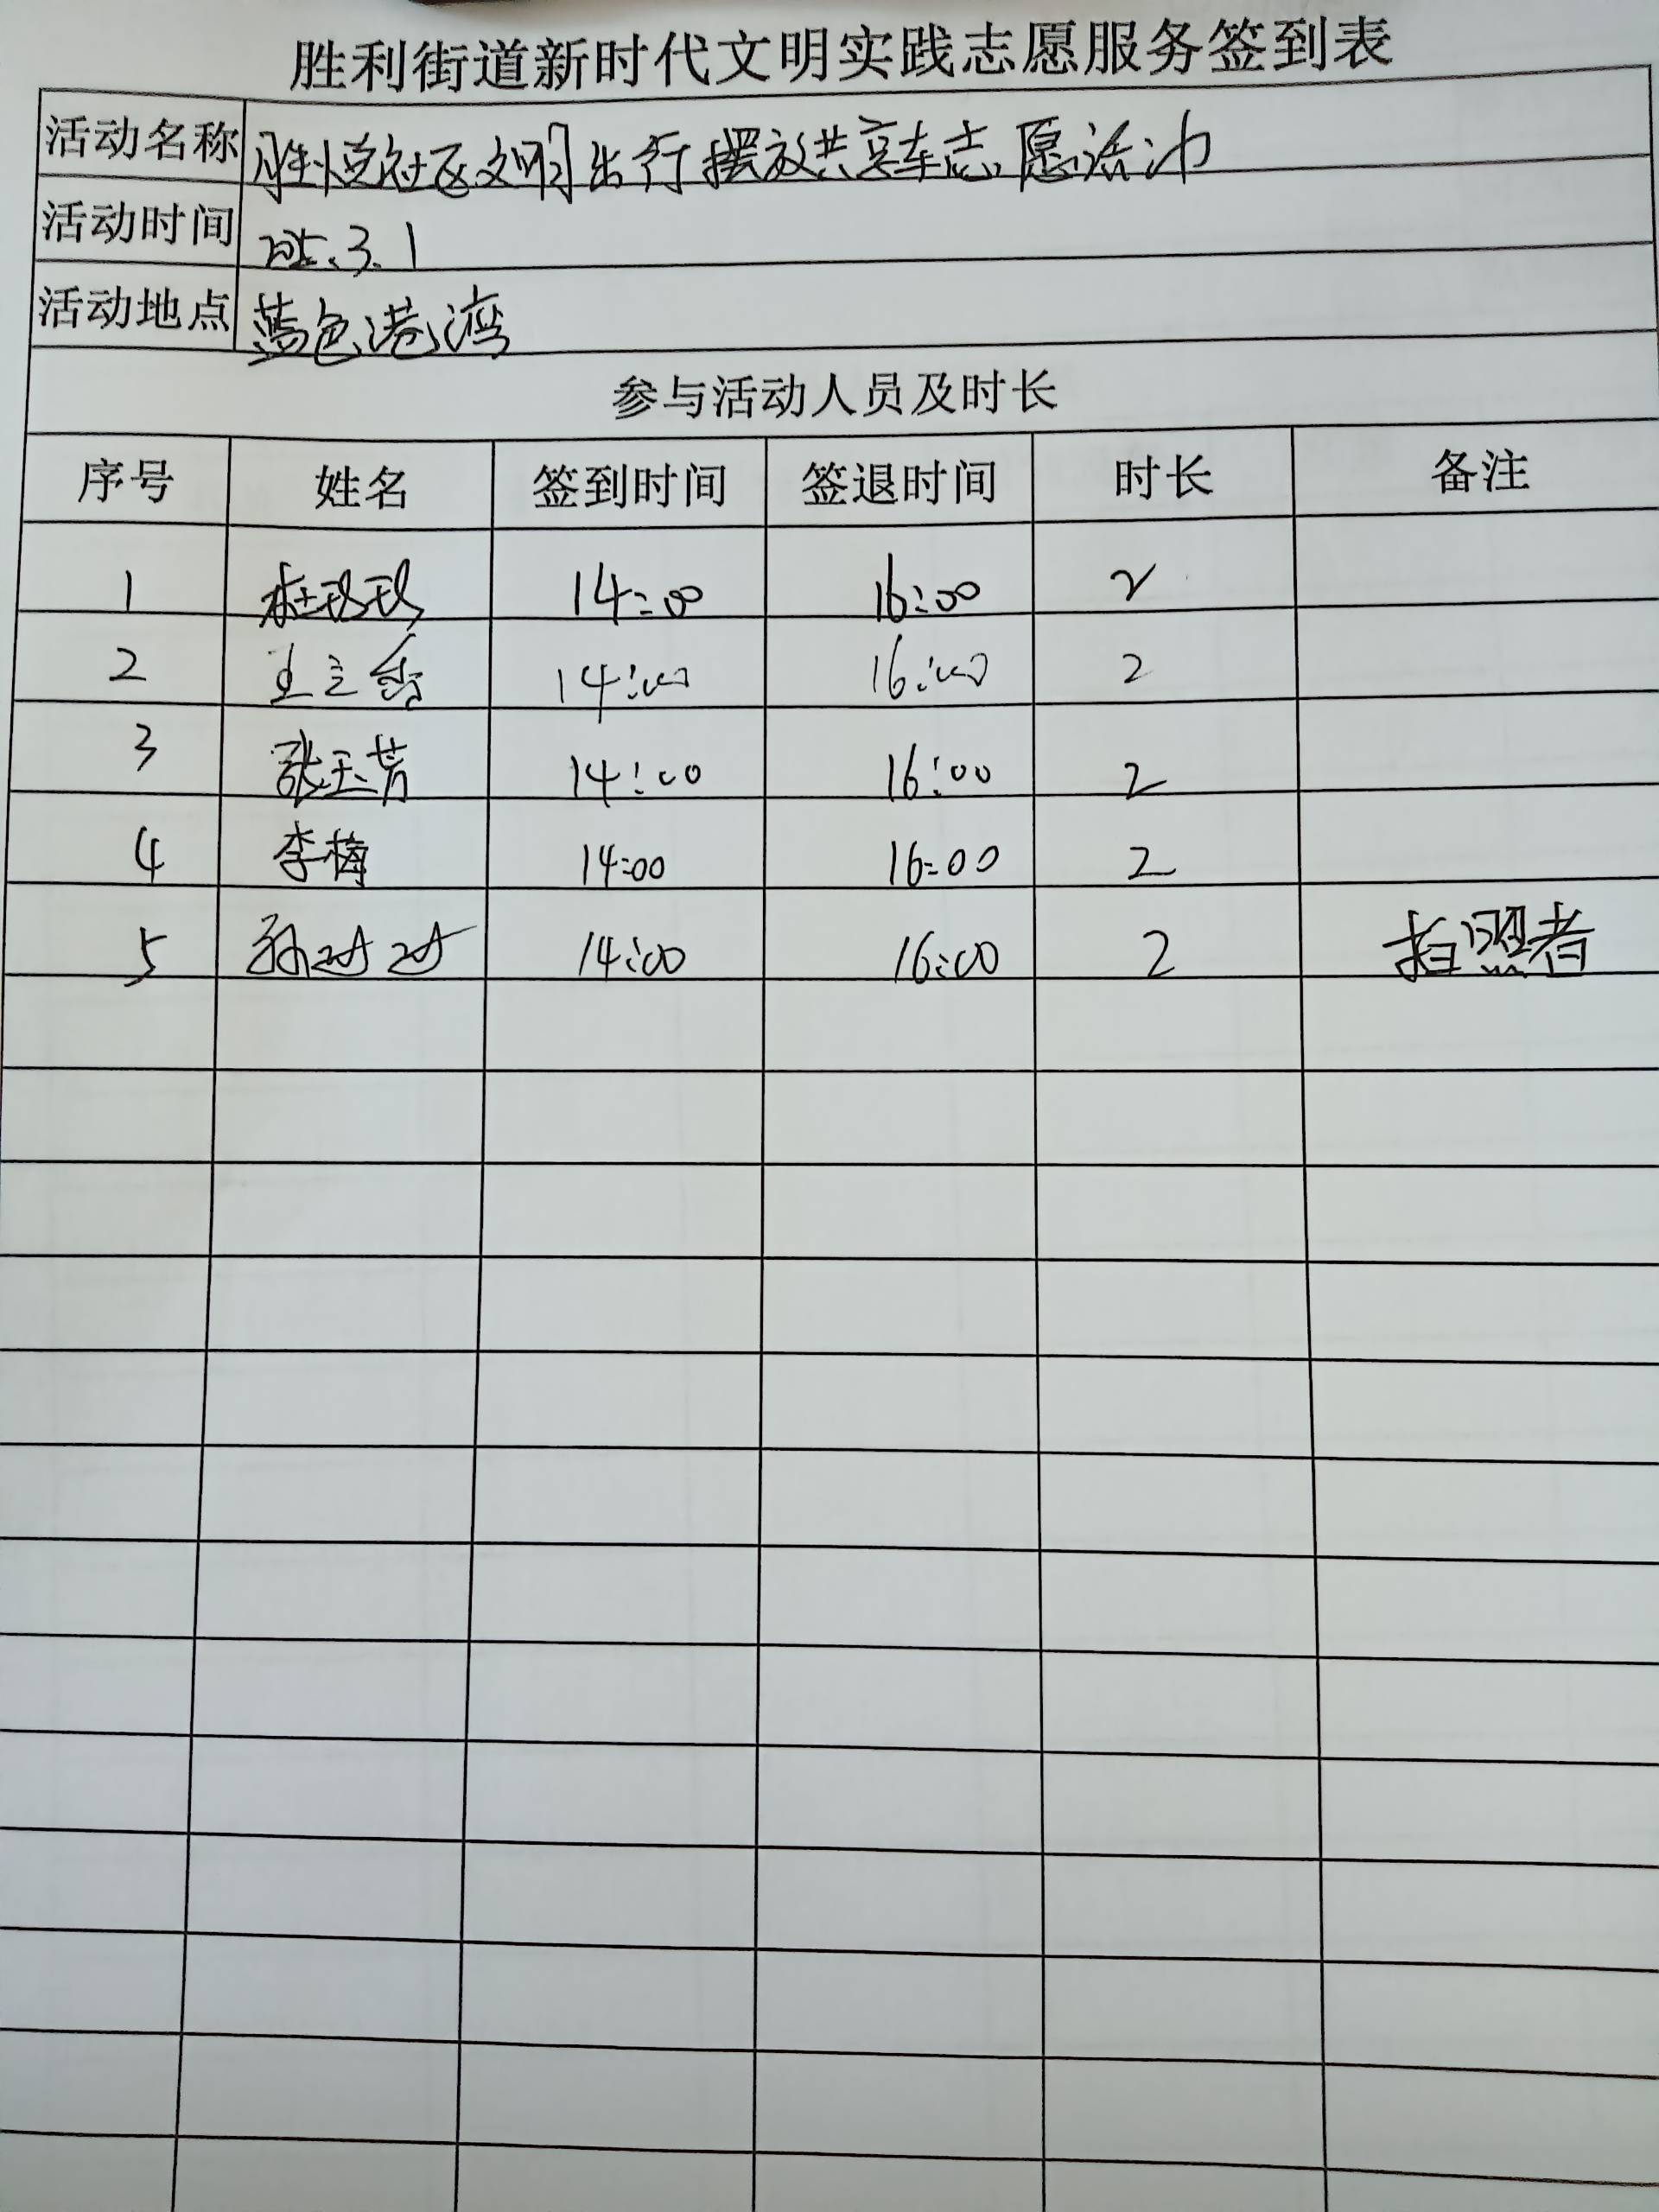 胜利街道新时代文明实践志愿服务签到表
活动名称 胜悦社区文明出行摆放共享车志愿活动
活动时间 2025.3.1
活动地点 蓝色港湾
参与活动人员及时长
序号 姓名 签到时间 签退时间 时长 备注
1 14:00 16:00 2
2 14:00 16:00 2
3 张玉芳 14:00 16:00 2
4 李梅 14:00 16:00 2
5 14:00 16:00 2 拍照者